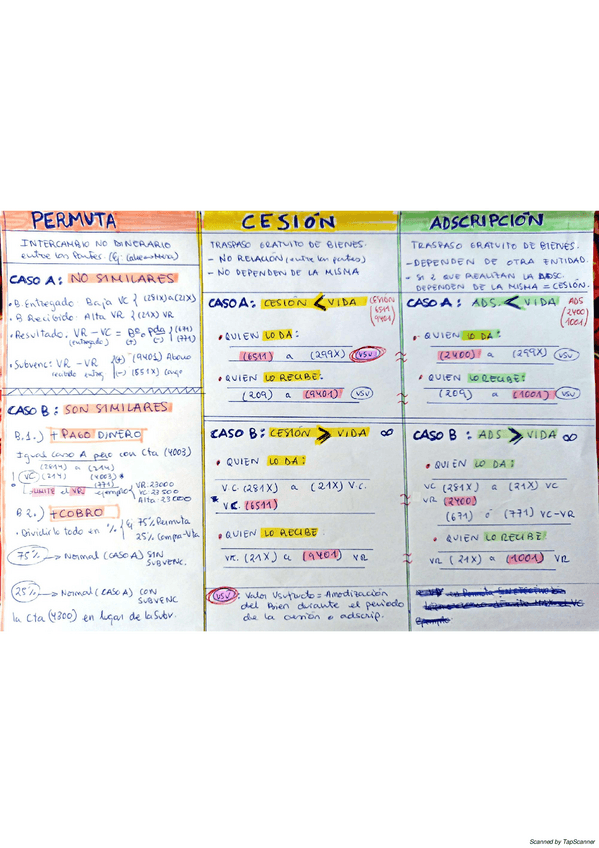 PERMUTA
INTERCAMBIO NO DINERARIO
entre las Partes (Ej: Coche↔Moto)
CASO A: NO SIMILARES
• B. Entregado: Baja VC { (281X) a (21X)
• B. Recibido: Alta VR { (21X) VR
• Resultado: VR - VC = Bº o pda { (671)
(entregado) (+) (-) (771)
• Subvenc: VR - VR { (+) (9401) Abono
recibido entreg (-) (551X) cargo
CASO B: SON SIMILARES
B.1.) + PAGO DINERO
Igual caso A pero con cta (4003)
(2814) a (214)
VC (214) (4003) *
(771)
LIMITE el VR ejemplo { VR: 23000
VC: 23500
Alta: 23000
B.2.) + COBRO
• Dividirlo todo en % { Ej 75% Permuta
25% Compra-Vta
75% → Normal (CASO A) SIN
SUBVENC.
25% → Normal (CASO A) CON
SUBVENC
la Cta (4300) en lugar de la Subv.
CESIÓN
TRASPASO GRATUITO DE BIENES.
- NO RELACIÓN (entre las partes)
- NO DEPENDEN DE LA MISMA
CASO A: CESIÓN < VIDA (CESIÓN
6511
9401)
• QUIEN LO DA:
(6511) a (299X) VSU
• QUIEN LO RECIBE:
(209) a (9401) VSU
CASO B: CESIÓN > VIDA ∞
• QUIEN LO DA:
V.C. (281X) a (21X) V.C.
* VR. (6511)
• QUIEN LO RECIBE
VR. (21X) a (9401) VR
VSU: Valor Usufructo = Amortización
del Bien durante el período
de la cesión o adscrip.
ADSCRIPCIÓN
TRASPASO GRATUITO DE BIENES.
- DEPENDEN DE OTRA ENTIDAD.
- SI 2 QUE REALIZAN LA ADSC.
DEPENDEN DE LA MISMA = CESIÓN.
CASO A: ADS. < VIDA ADS
(2400)
(1001)
• QUIEN LO DA:
(2400) a (299X) VSU
• QUIEN LO RECIBE:
(209) a (1001) VSU
CASO B: ADS > VIDA ∞
• QUIEN LO DA:
VC (281X) a (21X) VC
VR (2400)
(671) ó (771) VC-VR
• QUIEN LO RECIBE:
VR (21X) a (1001) VR
Scanned by TapScanner